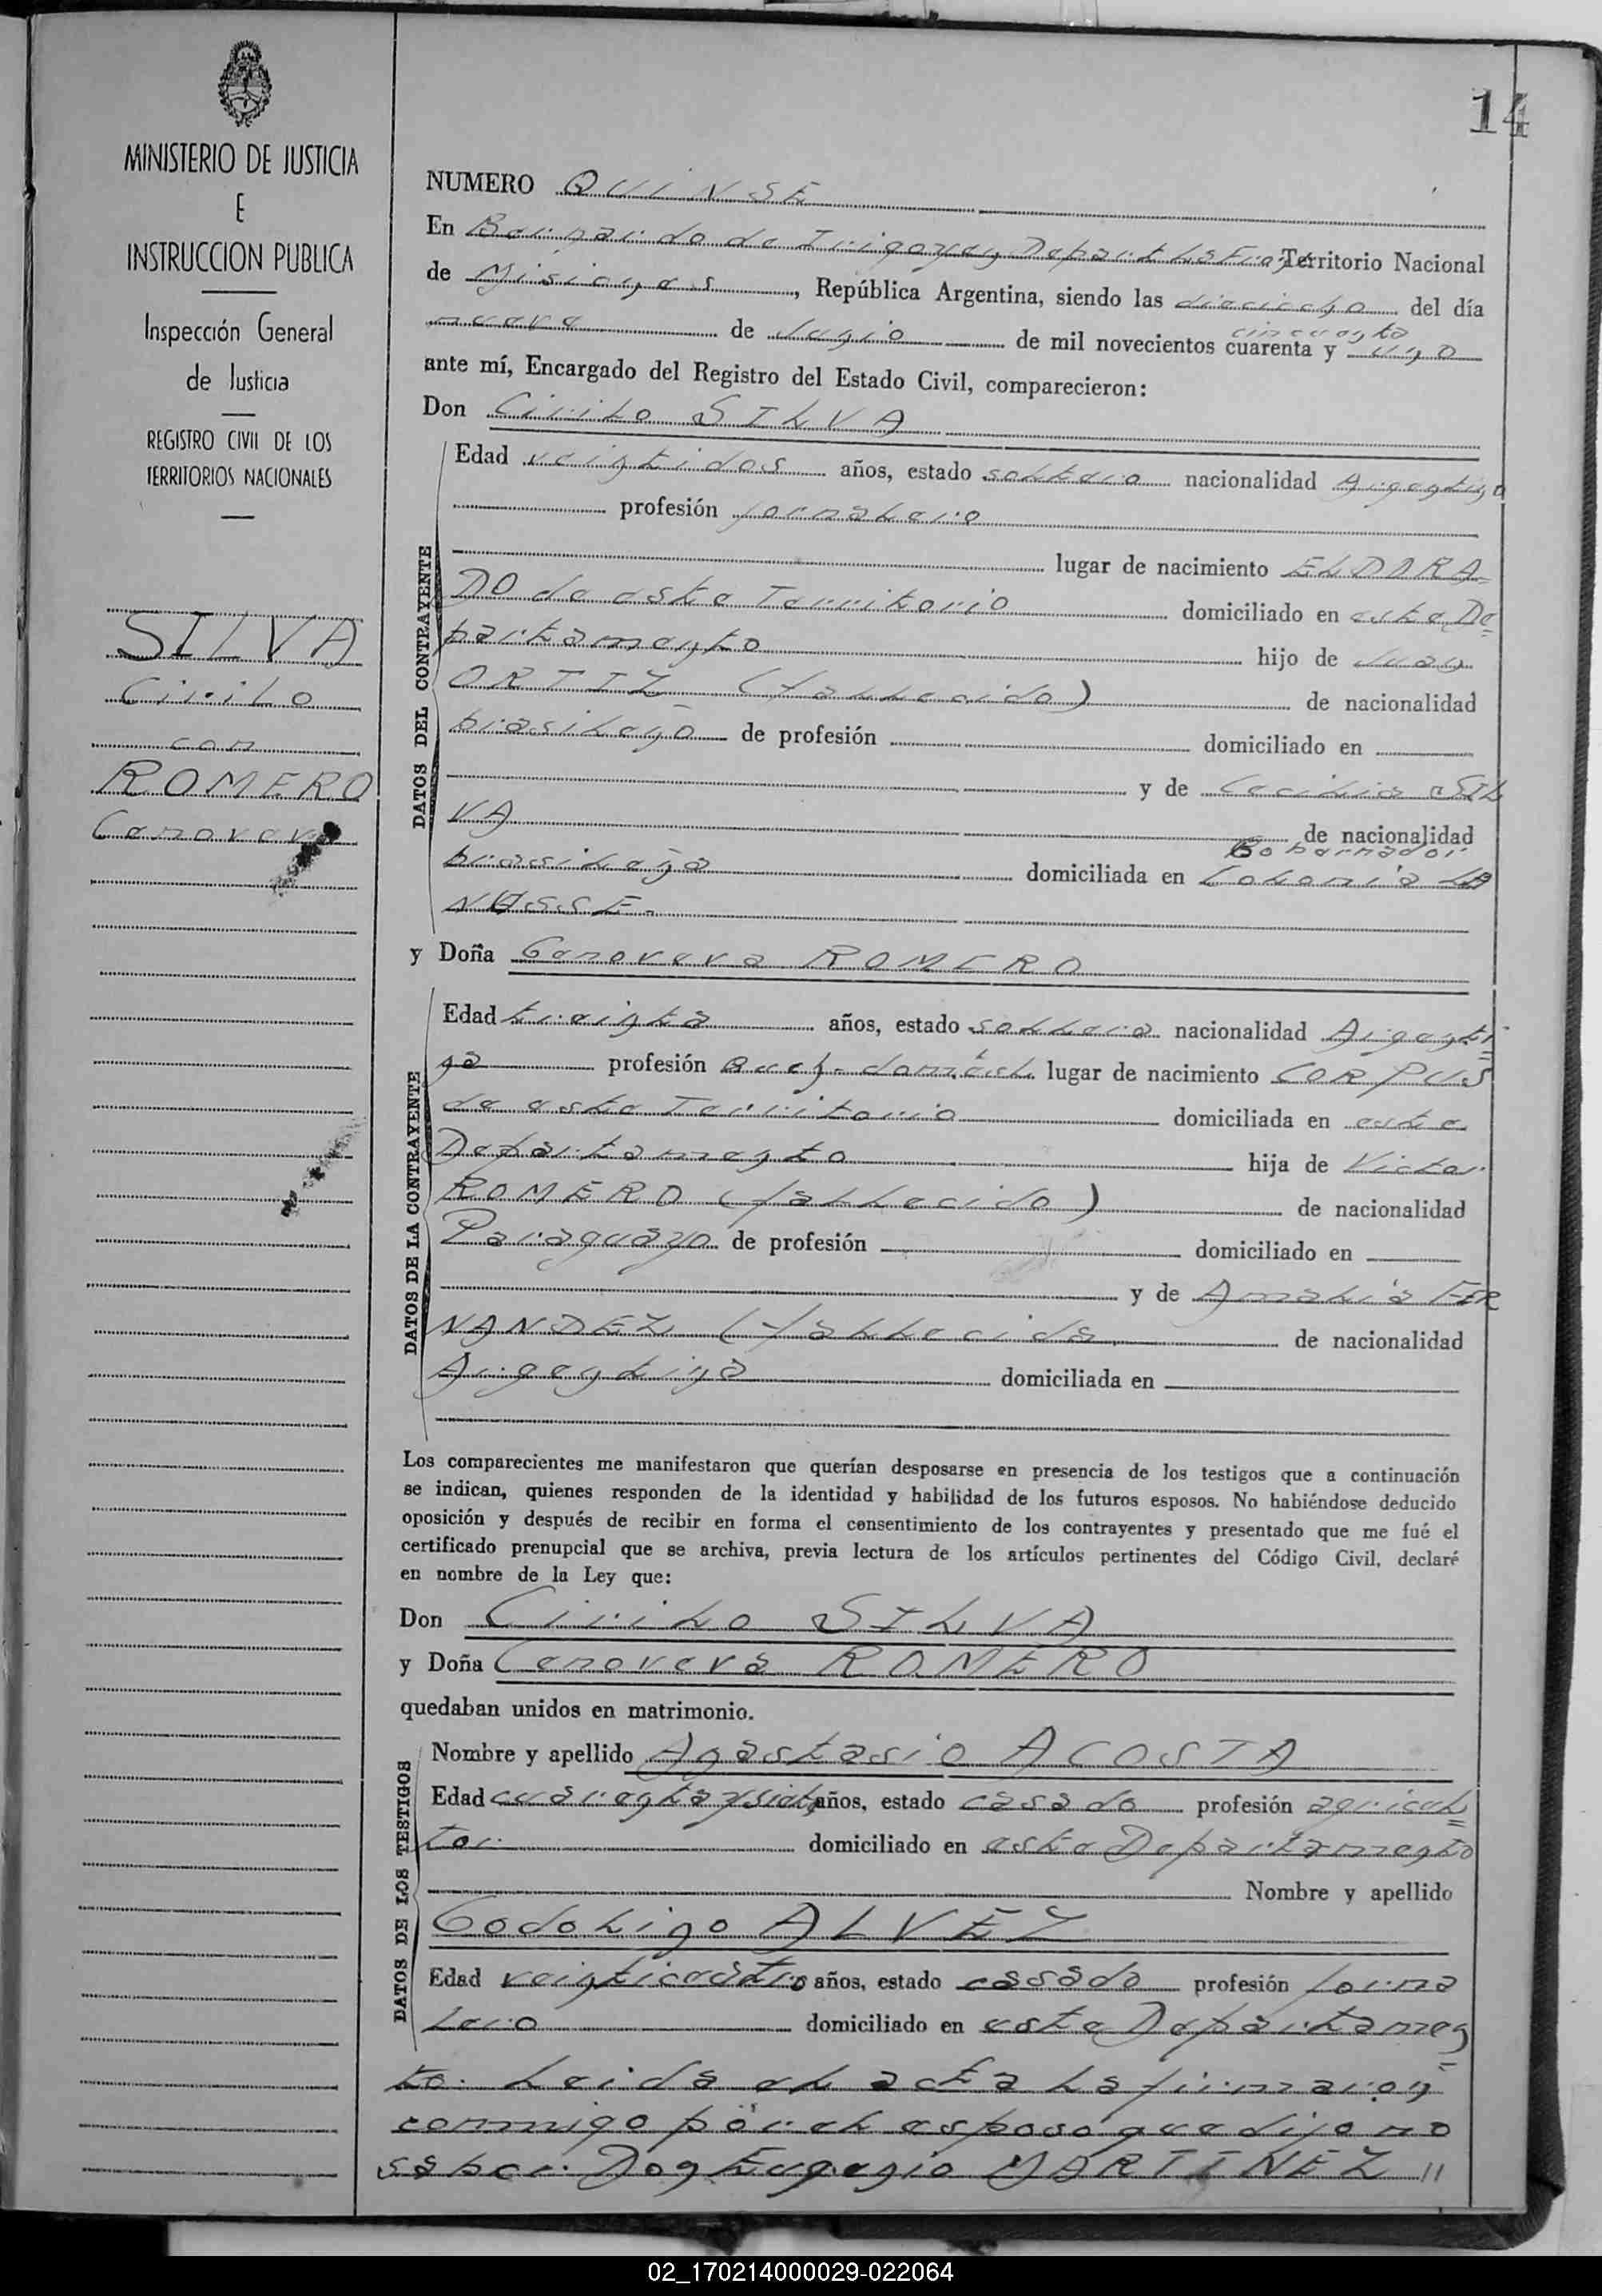 14
MINISTERIO DE JUSTICIA
E
INSTRUCCION PUBLICA
Inspección General
de Justicia
REGISTRO CIVIL DE LOS
TERRITORIOS NACIONALES
SILVA
Cirilo
con
ROMERO
Genoveva
NUMERO QUINSE
En Bernardo de Irigoyen Depart Territorio Nacional
de Misiones, República Argentina, siendo las dieciocho del día
cincuenta
nueve de Junio de mil novecientos cuarenta y uno
ante mí, Encargado del Registro del Estado Civil, comparecieron:
Don Cirilo SILVA
DATOS DEL CONTRAYENTE
Edad veintidos años, estado soltero nacionalidad Argentino
profesión jornalero
lugar de nacimiento ELDORA=
DO de este Territorio domiciliado en este De=
partamento hijo de Juan
ORTIZ (fallecido) de nacionalidad
brasileño de profesión domiciliado en
y de Cecilia SIL
VA de nacionalidad
Gobernador
brasileña domiciliada en Colonia LA
NUSSE.
y Doña Genoveva ROMERO
DATOS DE LA CONTRAYENTE
Edad treinta años, estado soltera nacionalidad Argenti=
na profesión Queh. domést. lugar de nacimiento CORPUS
de este Territorio domiciliada en este
Departamento hija de Victor
ROMERO (fallecido) de nacionalidad
Paraguayo de profesión domiciliado en
y de Amalia FER
NANDEZ (fallecida de nacionalidad
Argentina domiciliada en
Los comparecientes me manifestaron que querían desposarse en presencia de los testigos que a continuación
se indican, quienes responden de la identidad y habilidad de los futuros esposos. No habiéndose deducido
oposición y después de recibir en forma el consentimiento de los contrayentes y presentado que me fué el
certificado prenupcial que se archiva, previa lectura de los artículos pertinentes del Código Civil, declaré
en nombre de la Ley que:
Don Cirilo SILVA
y Doña Genoveva ROMERO
quedaban unidos en matrimonio.
DATOS DE LOS TESTIGOS
Nombre y apellido Anastasio ACOSTA
Edad cuarentaysiete años, estado casado profesión agricul=
tor domiciliado en este Departamento
Nombre y apellido
Godolino ALVEZ
Edad veinticuatro años, estado casado profesión jorna
lero domiciliado en este Departamen=
to. Leida el acta la firmaron
conmigo pór el esposo que dijo no
saber Don Eugenio MARTINEZ //
02_170214000029-022064